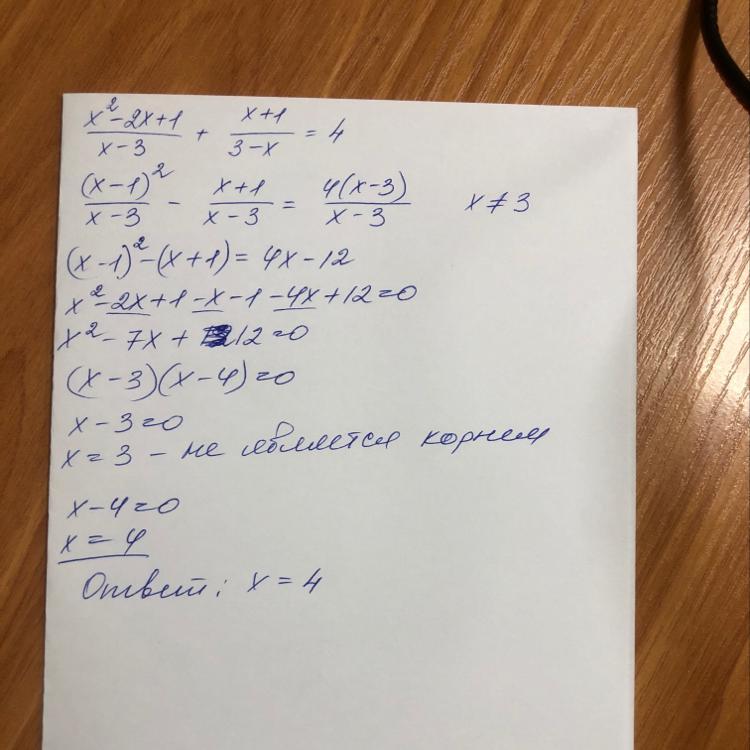 (x²-2x+1)/(x-3) + (x+1)/(3-x) = 4
(x-1)²/(x-3) - (x+1)/(x-3) = 4(x-3)/(x-3) x≠3
(x-1)²-(x+1)=4x-12
x²-2x+1-x-1-4x+12=0
x²-7x+12=0
(x-3)(x-4)=0
x-3=0
x=3 - не является корнем
x-4=0
x=4
Ответ: x=4